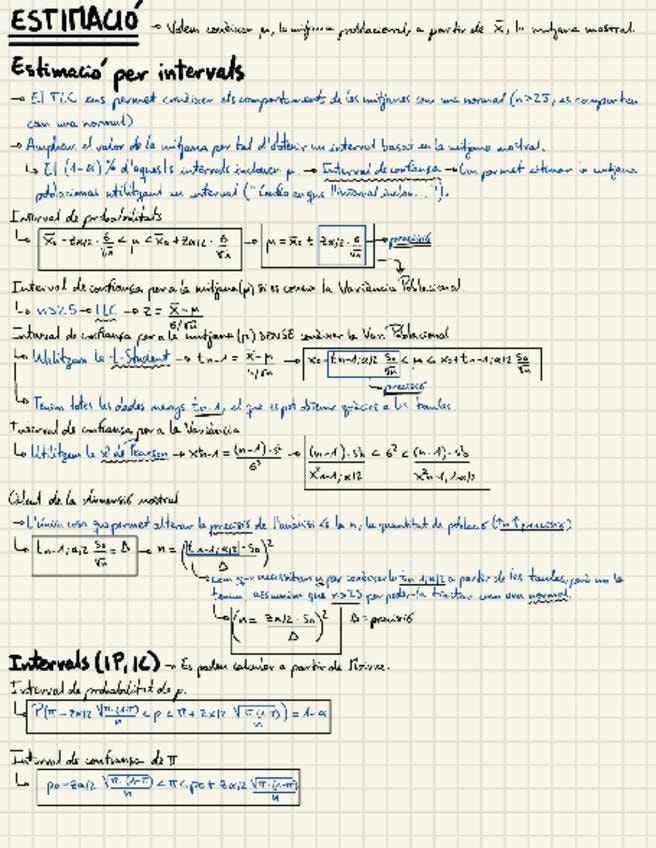 ESTIMACIÓ → Volem conèixer μ, la mitjana poblacional, a partir de x̄, la mitjana mostral.
Estimació per intervals
→ El TLC ens permet conèixer els comportaments de les mitjanes com una normal (n>25, es comporten
com una normal)
→ Ampliem el valor de la mitjana per tal d'obtenir un interval basat en la mitjana mostral.
↳ El (1-α)% d'aquests intervals inclouen μ. → Interval de confiança → Em permet estimar la mitjana
poblacional utilitzant un interval ("Confio en que l'interval inclou...").
Interval de probabilitats
↳ x̄₀ - zα/2 · σ/√n < μ < x̄₀ + zα/2 · σ/√n → μ = x̄₀ ± zα/2 · σ/√n → precisió
Interval de confiança per a la mitjana (μ) si es coneix la Variància Poblacional
↳ n>25 → TLC → z = x̄-μ / σ/√n
Interval de confiança per a la mitjana (μ) SENSE conèixer la Var. Poblacional
↳ Utilitzem la t-Student → tn-1 = x̄-μ / s/√n → x₀ - tn-1;α/2 s₀/√n < μ < x₀ + tn-1;α/2 s₀/√n
precisió
↳ Tenim totes les dades menys tn-1, el que es pot obtenir gràcies a les taules.
Interval de confiança per a la Variància
↳ Utilitzem la x² de Pearson → x²n-1 = (n-1)·s² / σ² → (n-1)·s²₀ / x²n-1;α/2 < σ² < (n-1)·s²₀ / x²n-1;1-α/2
Càlcul de la dimensió mostral
→ L'única cosa que permet alterar la precisió de l'anàlisi és la n, la quantitat de població (↑n ↑precisió)
↳ tn-1;α/2 s₀/√n = Δ → n = (tn-1;α/2 · s₀ / Δ)²
Com que necessitem n per conèixer la tn-1;α/2 a partir de les taules, però no la
tenim, assumim que n>25 per poder-la tractar com una normal.
↳ n = (zα/2 · s₀ / Δ)² Δ = precisió
Intervals (IP, IC) → Es poden calcular a partir de
Interval de probabilitat de p.
↳ P(π - zα/2 √π·(1-π)/n < p < π + zα/2 √π·(1-π)/n) = 1-α
Interval de confiança de π
↳ p₀ - zα/2 √π·(1-π)/n < π < p₀ + zα/2 √π·(1-π)/n